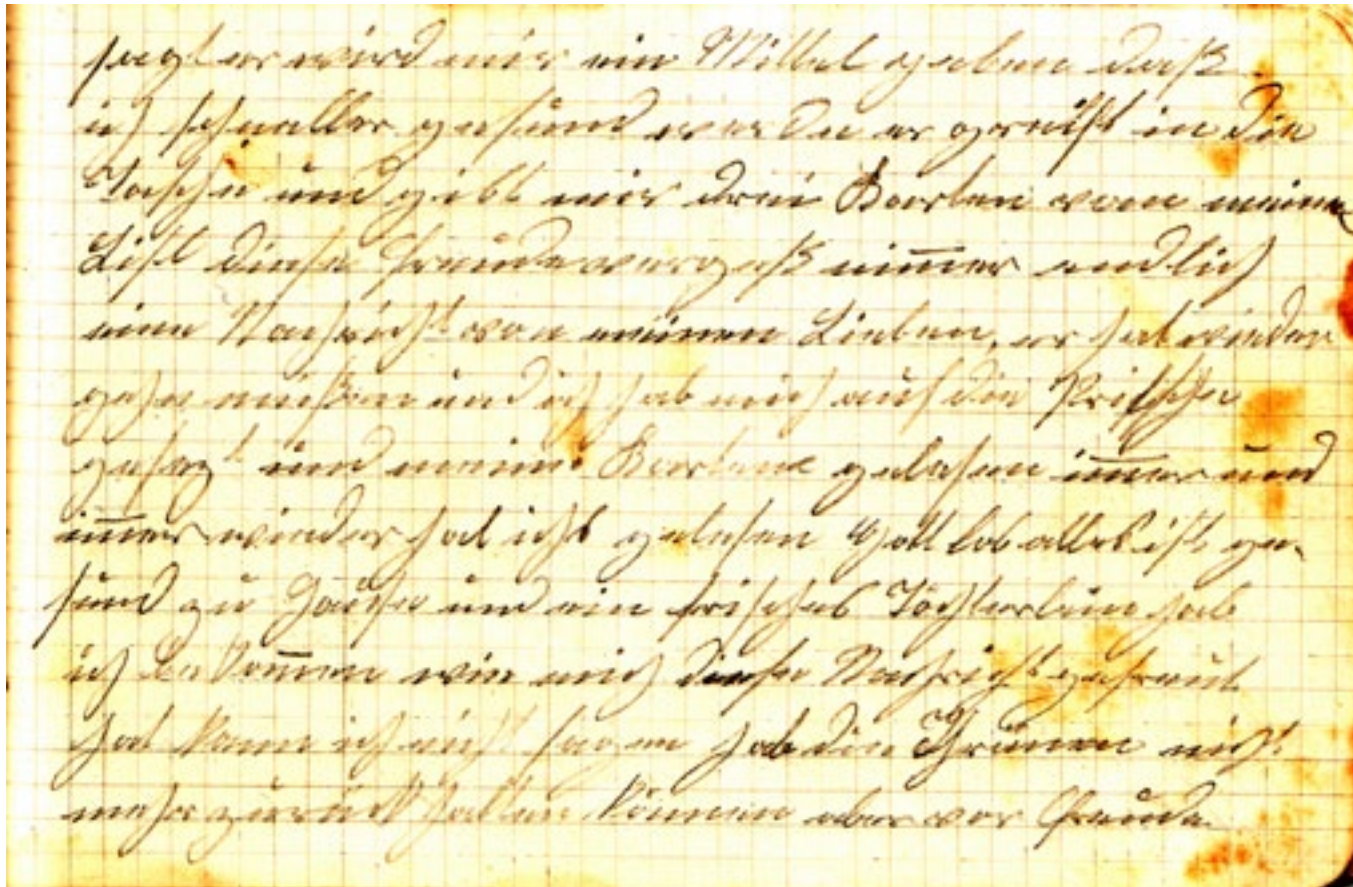 sagt er wird mir ein Mittel geben daß
ich schneller gesund werde er greift in die
Tasche und gibt mir drei Karten von meine
diese Freude vergeß nimmer endlich
eine Nachricht von meinen Lieben, er hat wieder
gehn müßen und ich hab mich auf die Pritsche
gesezt und meine Karten gelesen immer und
immer wieder hab ichs gelesen Gott lob alles ist ge-
sund zu Hause und ein frisches Töchterlein hab
ich bekommen wie mich diese Nachricht gefreut
hat kann ich nicht sagen hab die Thränen nicht
mehr zurück halten können aber vor Freude